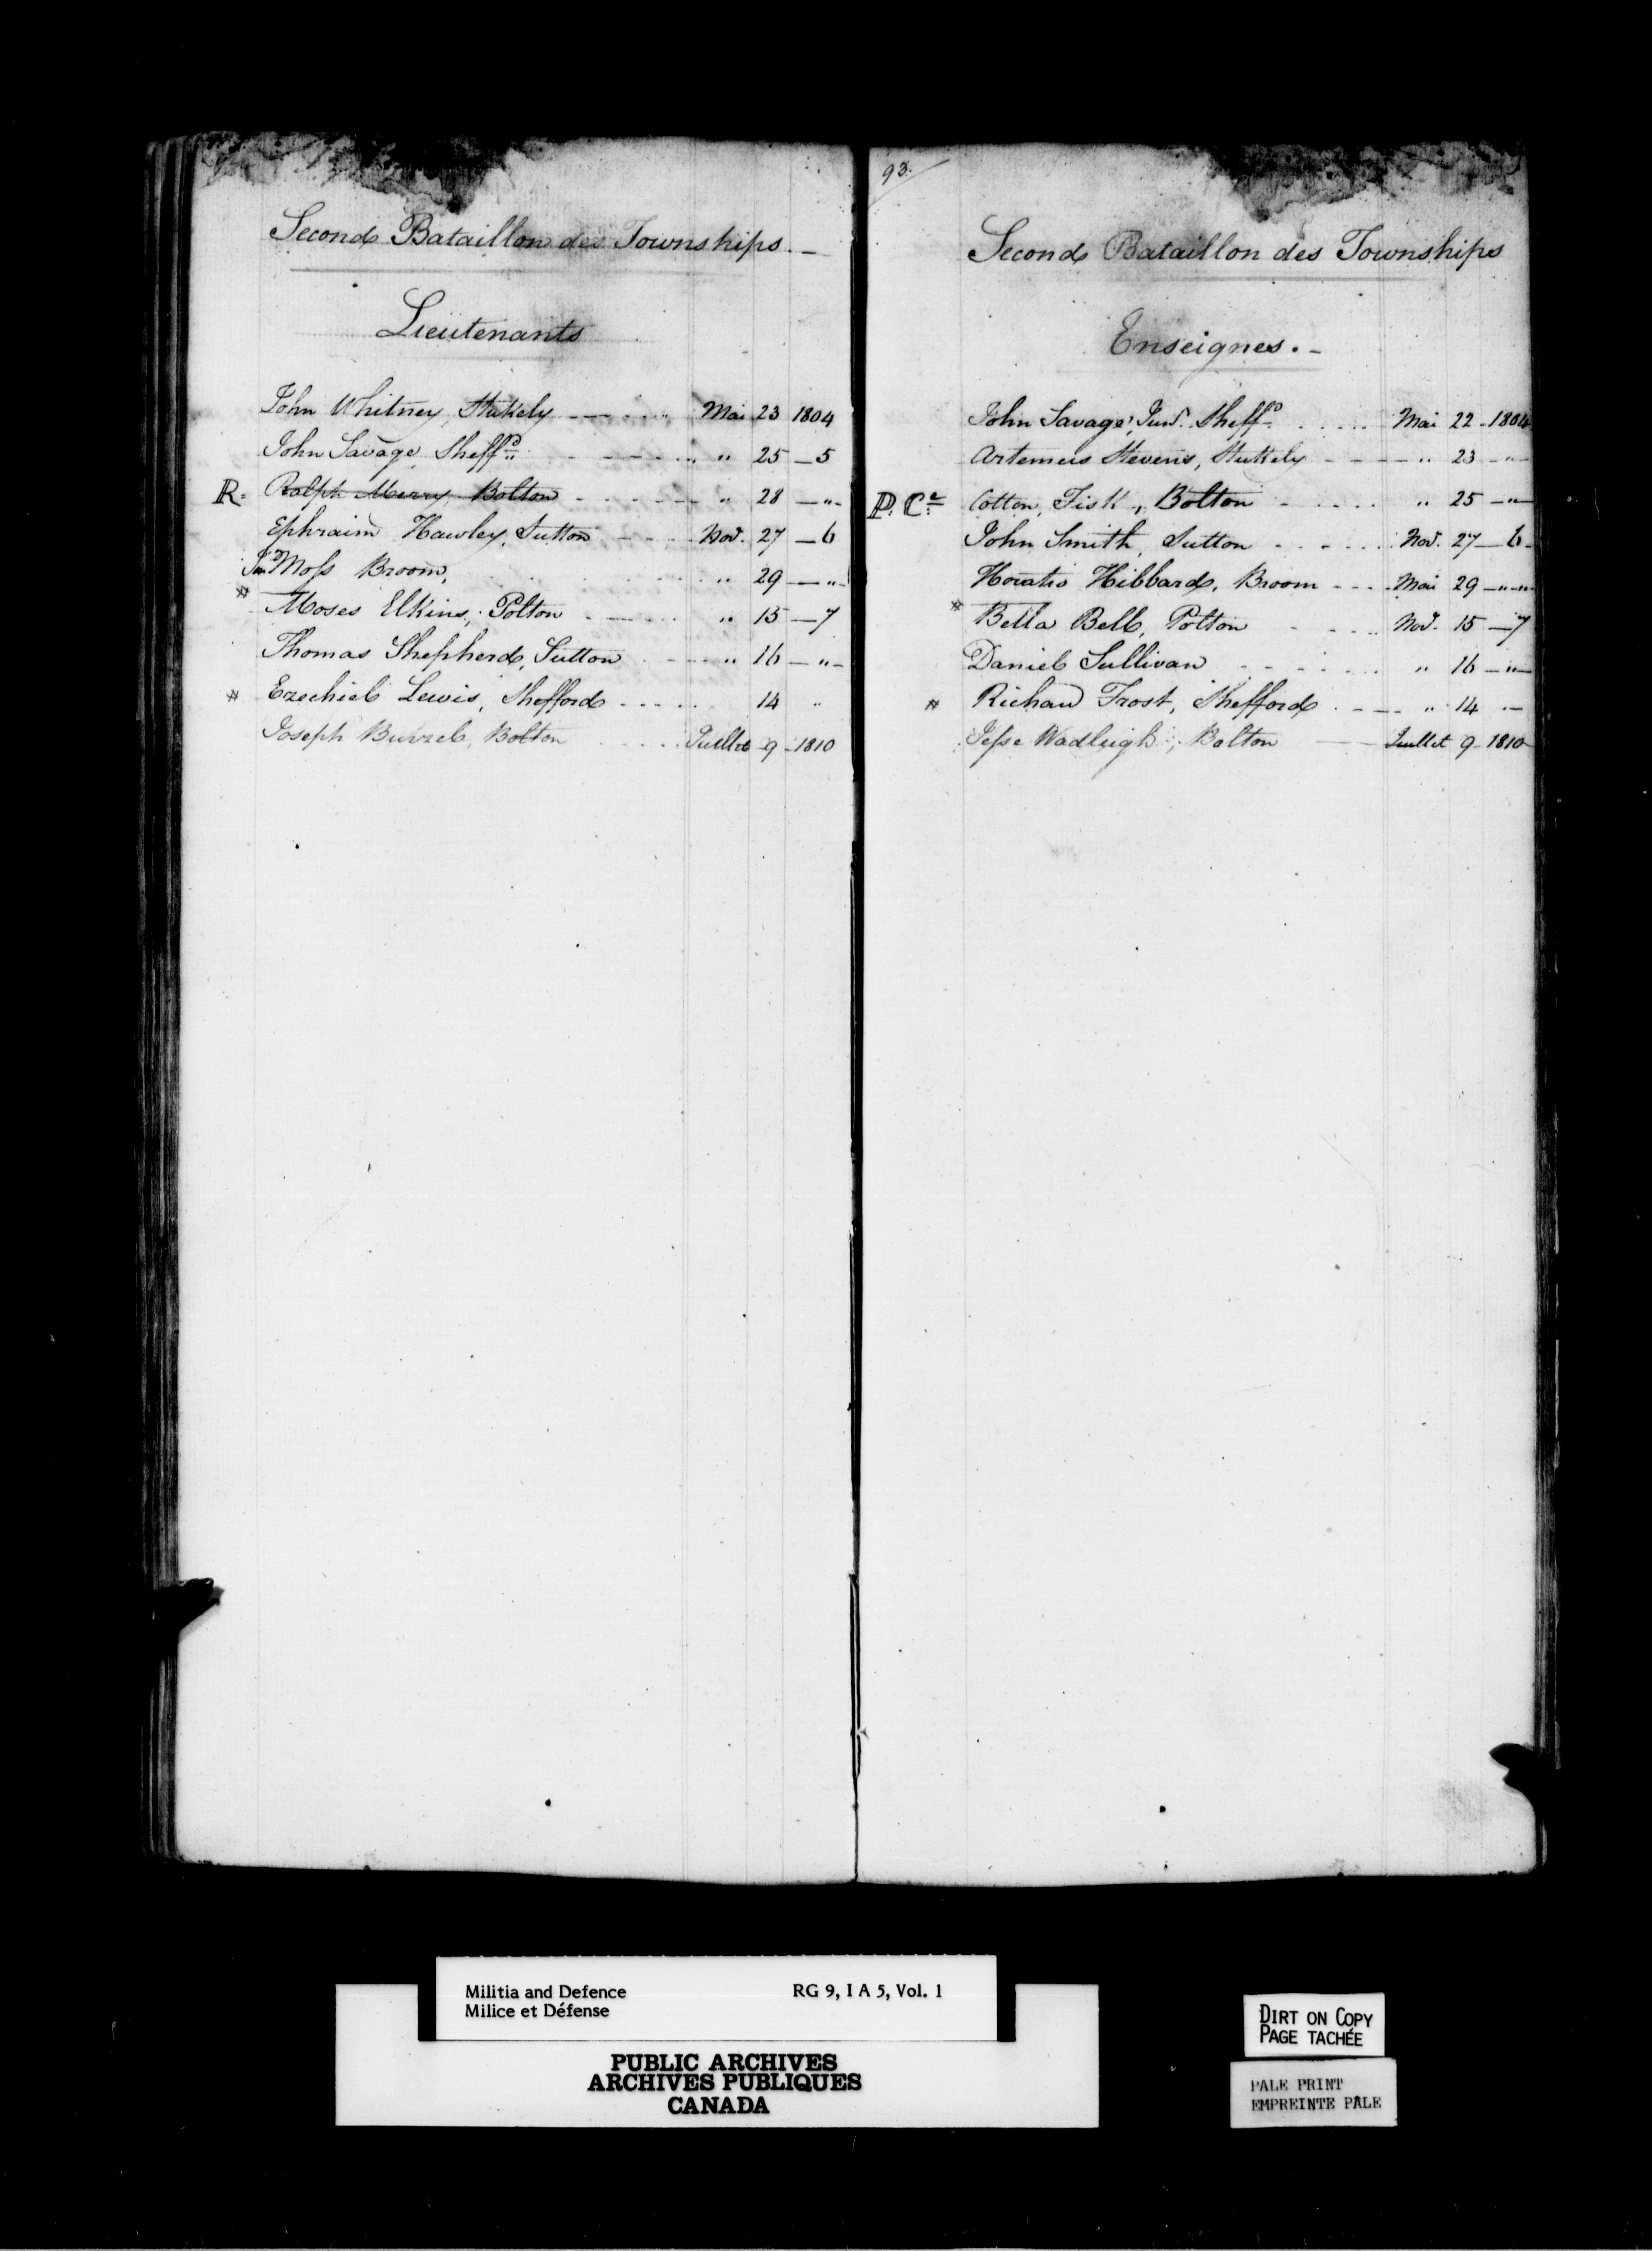 Second Bataillon des Townships. —
Lieutenants
John Whitney, Stukely - - - - Mai 23 1804
John Savage, Sheffd - - - - " 25 — 5
R. Ralph Merry, Bolton - - - - " 28 — "
Ephraim Hawley, Sutton - - - - Nov. 27 — 6
Jn Moss Broom, - - - - " 29 — "
* Moses Elkins, Potton - - - - " 15 — 7
Thomas Shepherd, Sutton - - - - " 16 — "
* Ezechiel Lewis, Shefford - - - - 14 "
Joseph Buvzel, Bolton - - - - Juillet 9 - 1810
93.
Second Bataillon des Townships
Enseignes. -
John Savage, Junr. Sheffd - - - - Mai 22 - 1804
Artemus Stevens, Stukely - - - - " 23 - "
P. Ce Cotton, Fisk, Bolton - - - - " 25 — "
John Smith, Sutton - - - - Nov. 27 — 6
Horatio Hibbard, Broom - - - - Mai 29 — "
* Bella Bell, Potton - - - - Nov. 15 — 7
Daniel Sullivan - - - - " 16 — "
* Richard Frost, Shefford - - - - " 14 " —
Jesse Wadleigh, Bolton — Juillet 9 - 1810
Militia and Defence RG 9, I A 5, Vol. 1
Milice et Défense
PUBLIC ARCHIVES
ARCHIVES PUBLIQUES
CANADA
DIRT ON COPY
PAGE TACHÉE
PALE PRINT
EMPREINTE PÂLE